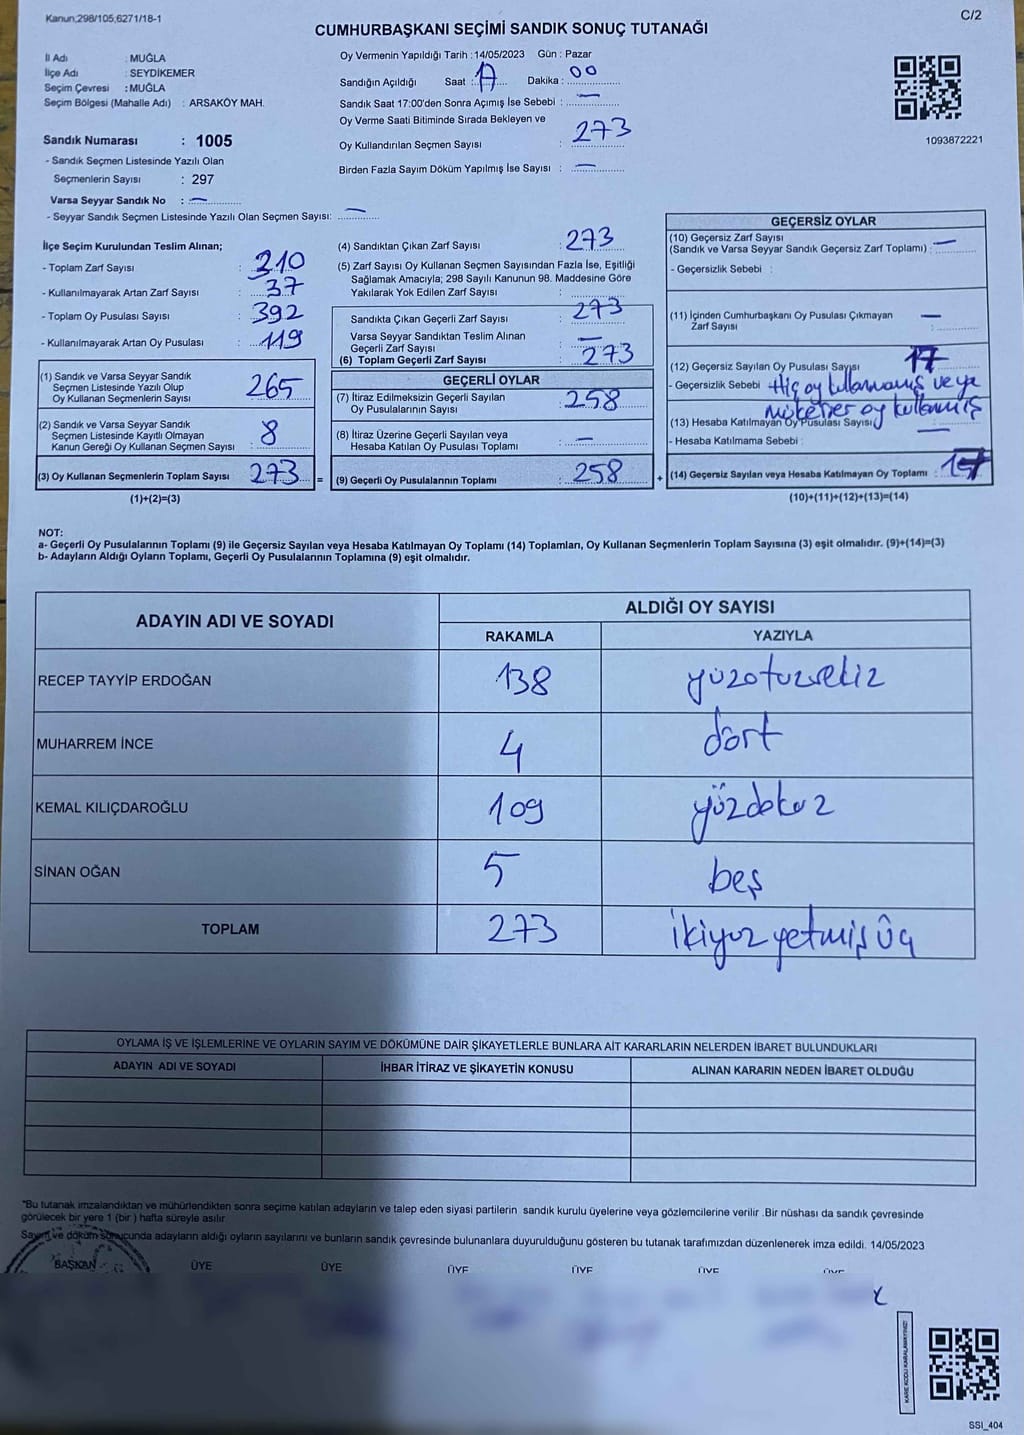 Kanun;298/105,6271/18-1
C/2
CUMHURBAŞKANI SEÇİMİ SANDIK SONUÇ TUTANAĞI
İl Adı : MUĞLA
İlçe Adı : SEYDİKEMER
Seçim Çevresi : MUĞLA
Seçim Bölgesi (Mahalle Adı) : ARSAKÖY MAH.
Sandık Numarası : 1005
- Sandık Seçmen Listesinde Yazılı Olan
Seçmenlerin Sayısı : 297
Varsa Seyyar Sandık No : —
- Seyyar Sandık Seçmen Listesinde Yazılı Olan Seçmen Sayısı: —
Oy Vermenin Yapıldığı Tarih :14/05/2023 Gün : Pazar
Sandığın Açıldığı Saat : Dakika : 00
Sandık Saat 17:00'den Sonra Açımış İse Sebebi : —
Oy Verme Saati Bitiminde Sırada Bekleyen ve
Oy Kullandırılan Seçmen Sayısı : 273
Birden Fazla Sayım Döküm Yapılmış İse Sayısı : —
1093872221
İlçe Seçim Kurulundan Teslim Alınan;
- Toplam Zarf Sayısı : 310
- Kullanılmayarak Artan Zarf Sayısı : 37
- Toplam Oy Pusulası Sayısı : 392
- Kullanılmayarak Artan Oy Pusulası : 119
(1) Sandık ve Varsa Seyyar Sandık
Seçmen Listesinde Yazılı Olup
Oy Kullanan Seçmenlerin Sayısı : 265
(2) Sandık ve Varsa Seyyar Sandık
Seçmen Listesinde Kayıtlı Olmayan
Kanun Gereği Oy Kullanan Seçmen Sayısı : 8
(3) Oy Kullanan Seçmenlerin Toplam Sayısı : 273 =
(1)+(2)=(3)
(4) Sandıktan Çıkan Zarf Sayısı : 273
(5) Zarf Sayısı Oy Kullanan Seçmen Sayısından Fazla İse, Eşitliği
Sağlamak Amacıyla; 298 Sayılı Kanunun 98. Maddesine Göre
Yakılarak Yok Edilen Zarf Sayısı :
Sandıkta Çıkan Geçerli Zarf Sayısı : 273
Varsa Seyyar Sandıktan Teslim Alınan
Geçerli Zarf Sayısı : —
(6) Toplam Geçerli Zarf Sayısı : 273
GEÇERLİ OYLAR
(7) İtiraz Edilmeksizin Geçerli Sayılan
Oy Pusulalarının Sayısı : 258
(8) İtiraz Üzerine Geçerli Sayılan veya
Hesaba Katılan Oy Pusulası Toplamı : —
(9) Geçerli Oy Pusulalarının Toplamı : 258 +
GEÇERSİZ OYLAR
(10) Geçersiz Zarf Sayısı
(Sandık ve Varsa Seyyar Sandık Geçersiz Zarf Toplamı) : —
- Geçersizlik Sebebi :
(11) İçinden Cumhurbaşkanı Oy Pusulası Çıkmayan
Zarf Sayısı : —
(12) Geçersiz Sayılan Oy Pusulası Sayısı : 17
- Geçersizlik Sebebi : Hiç oy kullanmamış veya
mükerrer oy kullanmış
(13) Hesaba Katılmayan Oy Pusulası Sayısı : —
- Hesaba Katılmama Sebebi :
(14) Geçersiz Sayılan veya Hesaba Katılmayan Oy Toplamı :
(10)+(11)+(12)+(13)=(14)
NOT:
a- Geçerli Oy Pusulalarının Toplamı (9) ile Geçersiz Sayılan veya Hesaba Katılmayan Oy Toplamı (14) Toplamları, Oy Kullanan Seçmenlerin Toplam Sayısına (3) eşit olmalıdır. (9)+(14)=(3)
b- Adayların Aldığı Oyların Toplamı, Geçerli Oy Pusulalarının Toplamına (9) eşit olmalıdır.
ADAYIN ADI VE SOYADI
ALDIĞI OY SAYISI
RAKAMLA YAZIYLA
RECEP TAYYİP ERDOĞAN 138 yüzotuzsekiz
MUHARREM İNCE 4 dört
KEMAL KILIÇDAROĞLU 109 yüzdokuz
SİNAN OĞAN 5 beş
TOPLAM 273 ikiyüzyetmişüç
OYLAMA İŞ VE İŞLEMLERİNE VE OYLARIN SAYIM VE DÖKÜMÜNE DAİR ŞİKAYETLERLE BUNLARA AİT KARARLARIN NELERDEN İBARET BULUNDUKLARI
ADAYIN ADI VE SOYADI İHBAR İTİRAZ VE ŞİKAYETİN KONUSU ALINAN KARARIN NEDEN İBARET OLDUĞU
*Bu tutanak imzalandıktan ve mühürlendikten sonra seçime katılan adayların ve talep eden siyasi partilerin sandık kurulu üyelerine veya gözlemcilerine verilir .Bir nüshası da sandık çevresinde
görülecek bir yere 1 (bir ) hafta süreyle asılır
Sayım ve döküm sonucunda adayların aldığı oyların sayılarını ve bunların sandık çevresinde bulunanlara duyurulduğunu gösteren bu tutanak tarafımızdan düzenlenerek imza edildi. 14/05/2023
BAŞKAN ÜYE ÜYE ÜYE ÜYE ÜYE ÜYE
KARE KODU KARALAMAYINIZ!
SSI_404